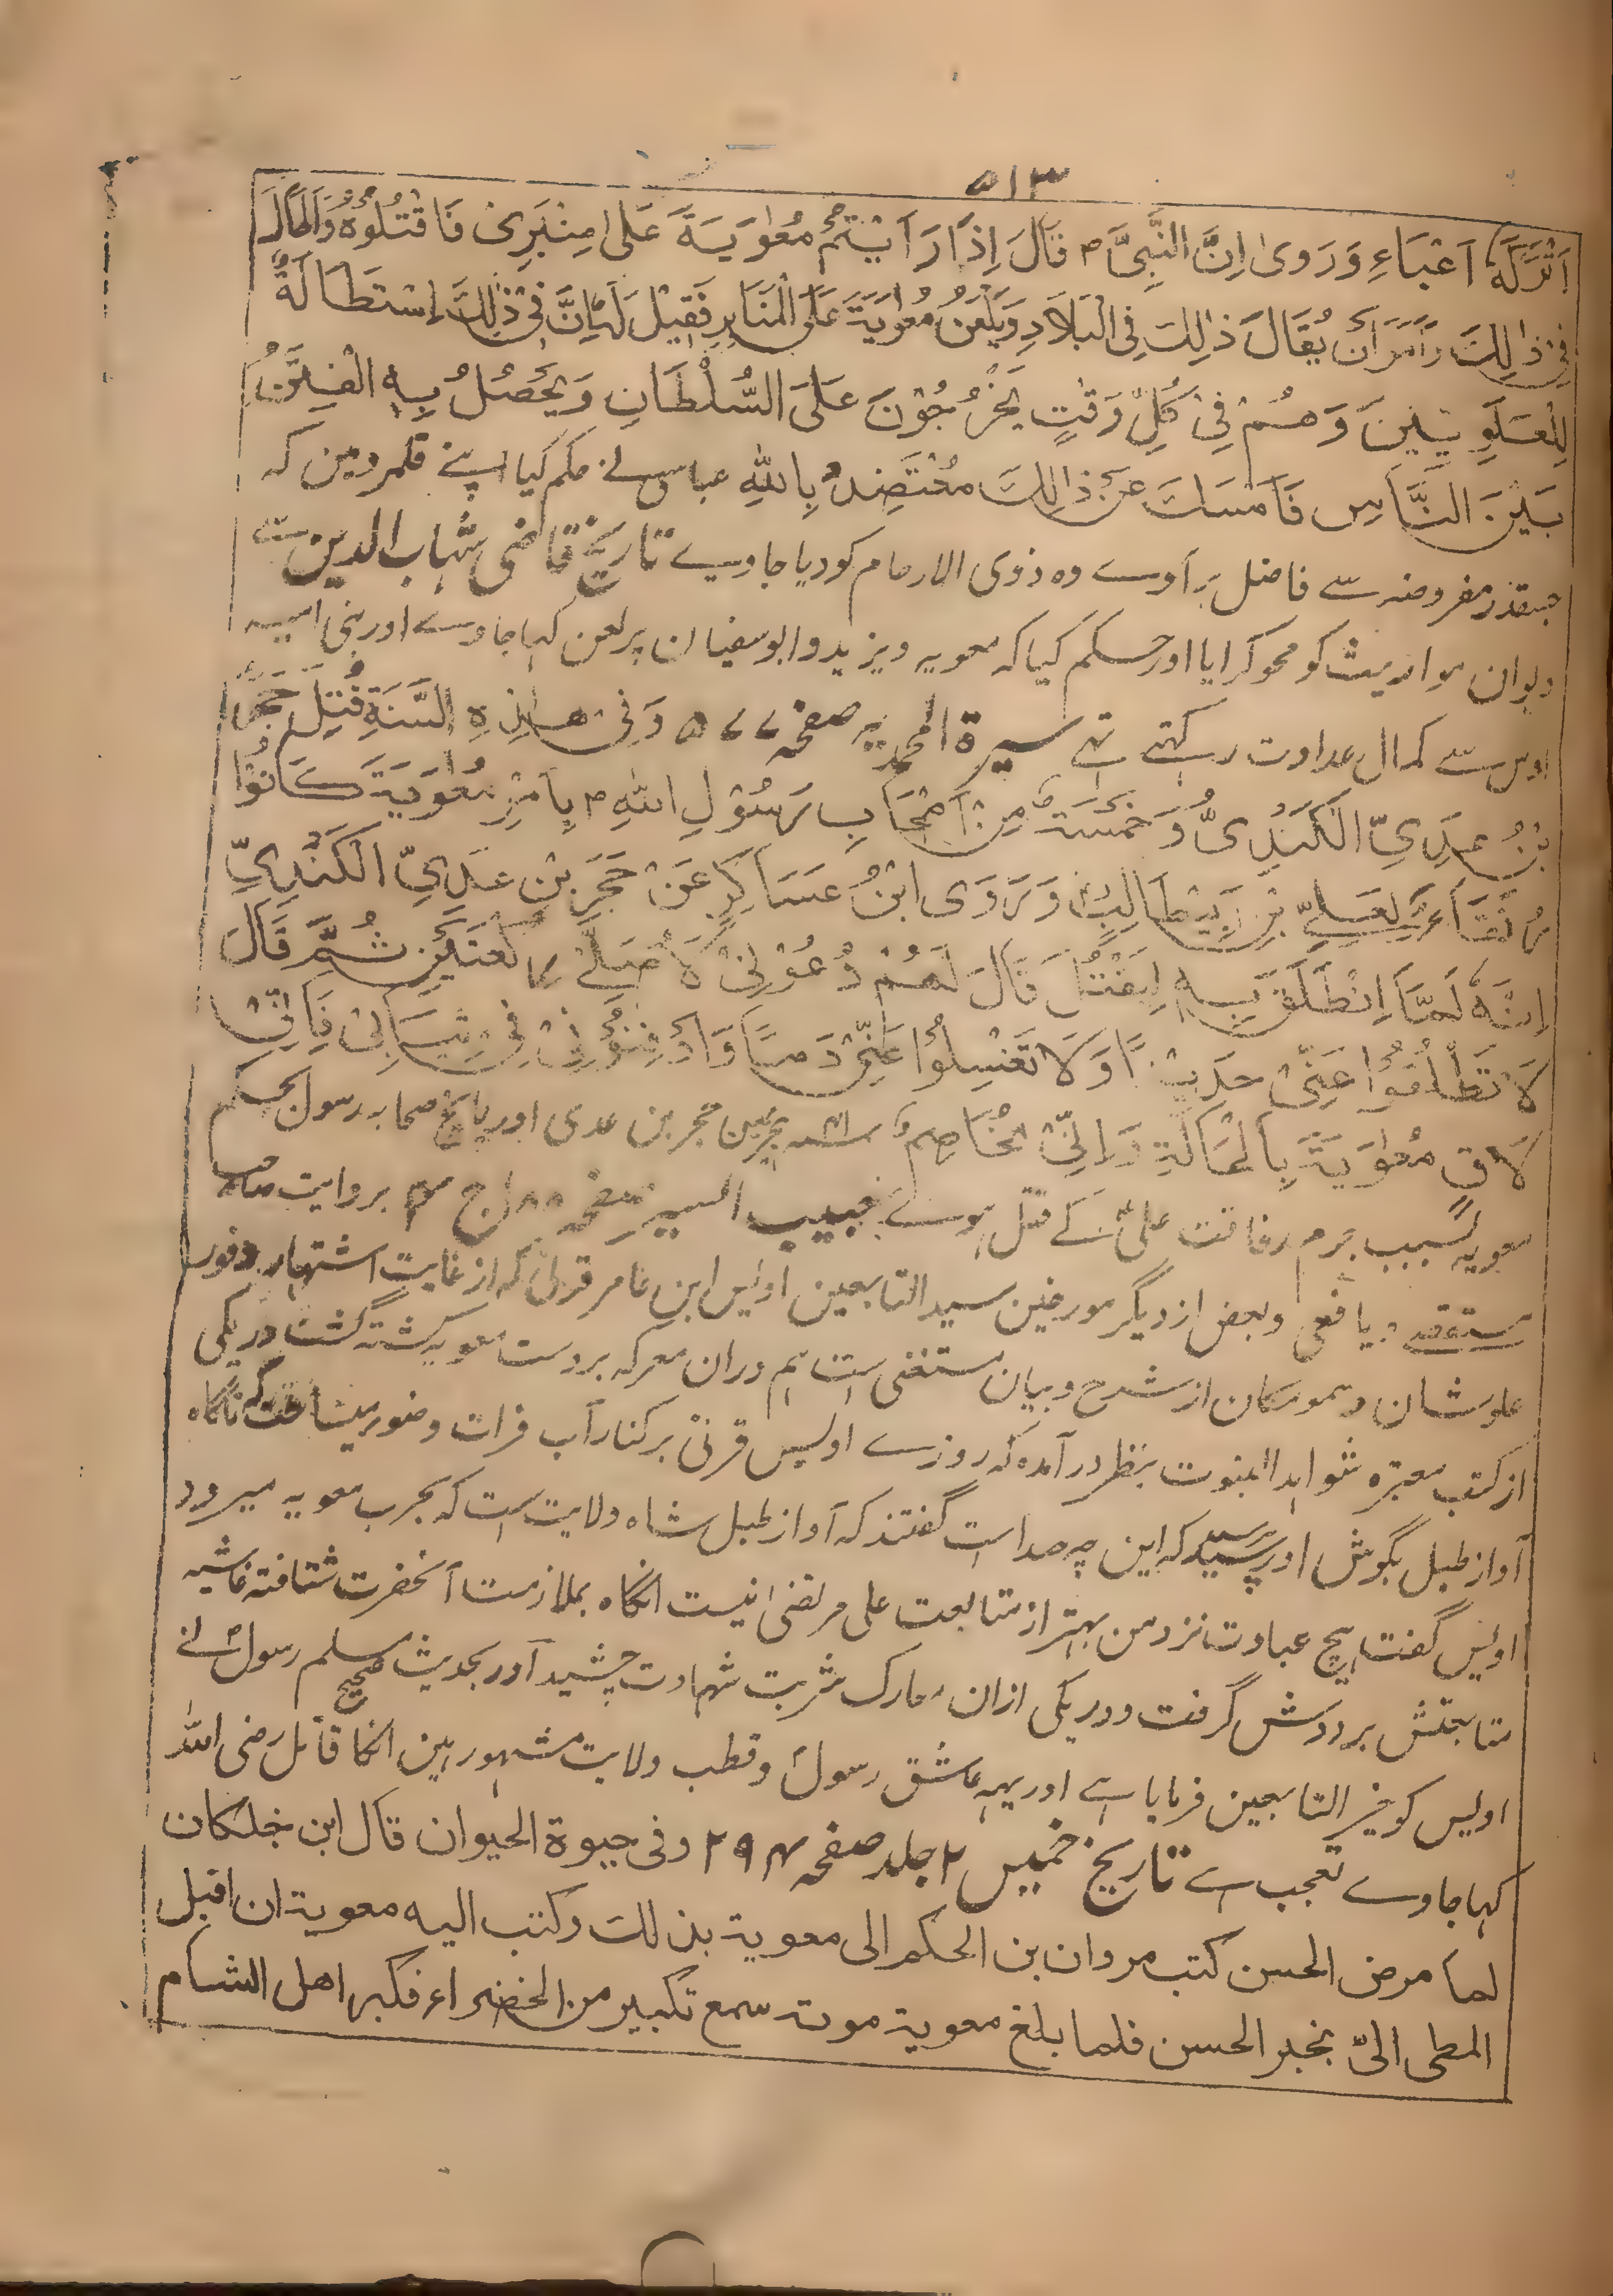 ۵۱۳
اَتْرَكَهٗ اَعْبَاءِ وَرَوىٰ اِنَّ النَّبِیَّ م قَالَ اِذَا رَاَیْتُمْ مُعٰوِیَةَ عَلىٰ مِنْبَرِیْ فَاقْتُلُوْهُ وَاَطَالَ
فِیْ ذٰلِكَ وَاَمَرَ اَنْ یُقَالَ ذٰلِكَ فِی الْبَلَادِ وَیَلْعَنُ مُعٰوِیَةَ عَلَى الْمَنَابِرِ فَقِیْلَ لَهٗ اِنَّ فِیْ ذٰلِكَ اِسْتِطَالَةً
لِلْعَلَوِیِّیْنَ وَهُمْ فِیْ كُلِّ وَقْتٍ یَخْرُجُوْنَ عَلَى السُّلْطَانِ وَیَحْصُلُ بِهِ الْفِتَنُ
بَیْنَ النَّاسِ فَاَمْسَكَ عَنْ ذٰالِكَ مُعْتَضِدُ بِاللّٰهِ عباسی نے حکم کیا اپنے قلمرو مین کہ
جسقدر مفروضہ سے فاضل برآوے وہ ذوی الارحام کو دیا جاوے تاریخ قاضی شہاب الدین سے
دیوان مواریث کو محو کرایا اور حکم کیا کہ معویہ ویزید وابوسفیان پر لعن کہا جاوے اور بنی امیہ
اوس سے کمال عداوت رکہتے تہے سیرة المحمدیہ صفحہ ۵۷۷ وَفِیْ هٰذِهِ السَّنَةِ قُتِلَ حَجَرُ
بْنُ عَدِیِّ الْكَنْدِیُّ وَخَمْسَةٌ مِنْ اَصْحَابِ رَسُوْلِ اللهِ م بِاَمْرِ مُعٰوِیَةَ كَانُوْا
رُفَقَاءَ لِعَلِیِّ بْنِ اَبِیْطَالِبٍ وَرَوَى ابْنُ عَسَاكِرٍ عَنْ حَجَرِ بْنِ عَدِیِّ الْكَنْدِیِّ
اِنَّهٗ لَمَّا اِنْطَلَقَ بِهٖ لِیَقْتُلَ قَالَ لَهُمْ دُعُوْنِیْ لَاُصَلِّیْ ركعتَیْنِ ثُمَّ قَالَ
لَا تَطْلُقُوْا عَنِّیْ حَدِیْدًا وَلَا تَغْسِلُوْا عَنِّیْ دَمًا وَادْفِنُوْنِیْ فِیْ ثِیَابِیْ فَاِنِّیْ
لَاقٍ مُعٰوِیَةَ بِالْحَالَةِ وَاِنِّیْ مُخَاصِمٌ ہجری مین حجر بن عدی اور پانچ صحابہ رسول بحکم
معویہ بسبب جرم رفاقت علی کے قتل ہوے حبیب السیر صفحہ ۸۸ ج ۳ بروایت صاحب
مستقصے ویافعی وبعض از دیگر مورخین سید التابعین اویس ابن عامر قرنی کہ از غایت اشتہار وفور
علو شان وسمو مکان از شرح وبیان مستغنی است ہم دران معرکہ بردست معویہ کشتہ گشت در یکی
از کتب معتبرہ شواہد النبوت بنظر درآمدہ کہ روزے اویس قرنی برکنار آب فرات وضو میساخت کہ ناگاہ
آواز طبل بگوش او رسید پرسید کہ این چہ صدا است گفتند کہ آواز طبل شاہ ولایت است کہ بحرب معویہ میرود
اویس گفت ہیچ عبادت نزد من بہتر از متابعت علی مرتضی نیست انگاہ بملازمت آنحضرت شتافتہ غاشیہ
متابعتش بردوش گرفت ودر یکی ازان معارک شربت شہادت چشید اور بحدیث صحیح مسلم رسول نے
اویس کو خیر التابعین فرمایا ہے اور یہہ عاشق رسول وقطب ولایت مشہور ہین انکا قاتل رضی اللہ
کہا جاوے تعجب ہے تاریخ خمیس ۲ جلد صفحہ ۲۹۴ وفی حیوة الحیوان قال ابن خلکان
لما مرض الحسن کتب مروان بن الحکم الی معویة بذلك وکتب الیه معویة ان اقبل
المطی الیّ بخبر الحسن فلما بلغ معویة موته سمع تکبیر من الخضراء فکبر اهل الشام